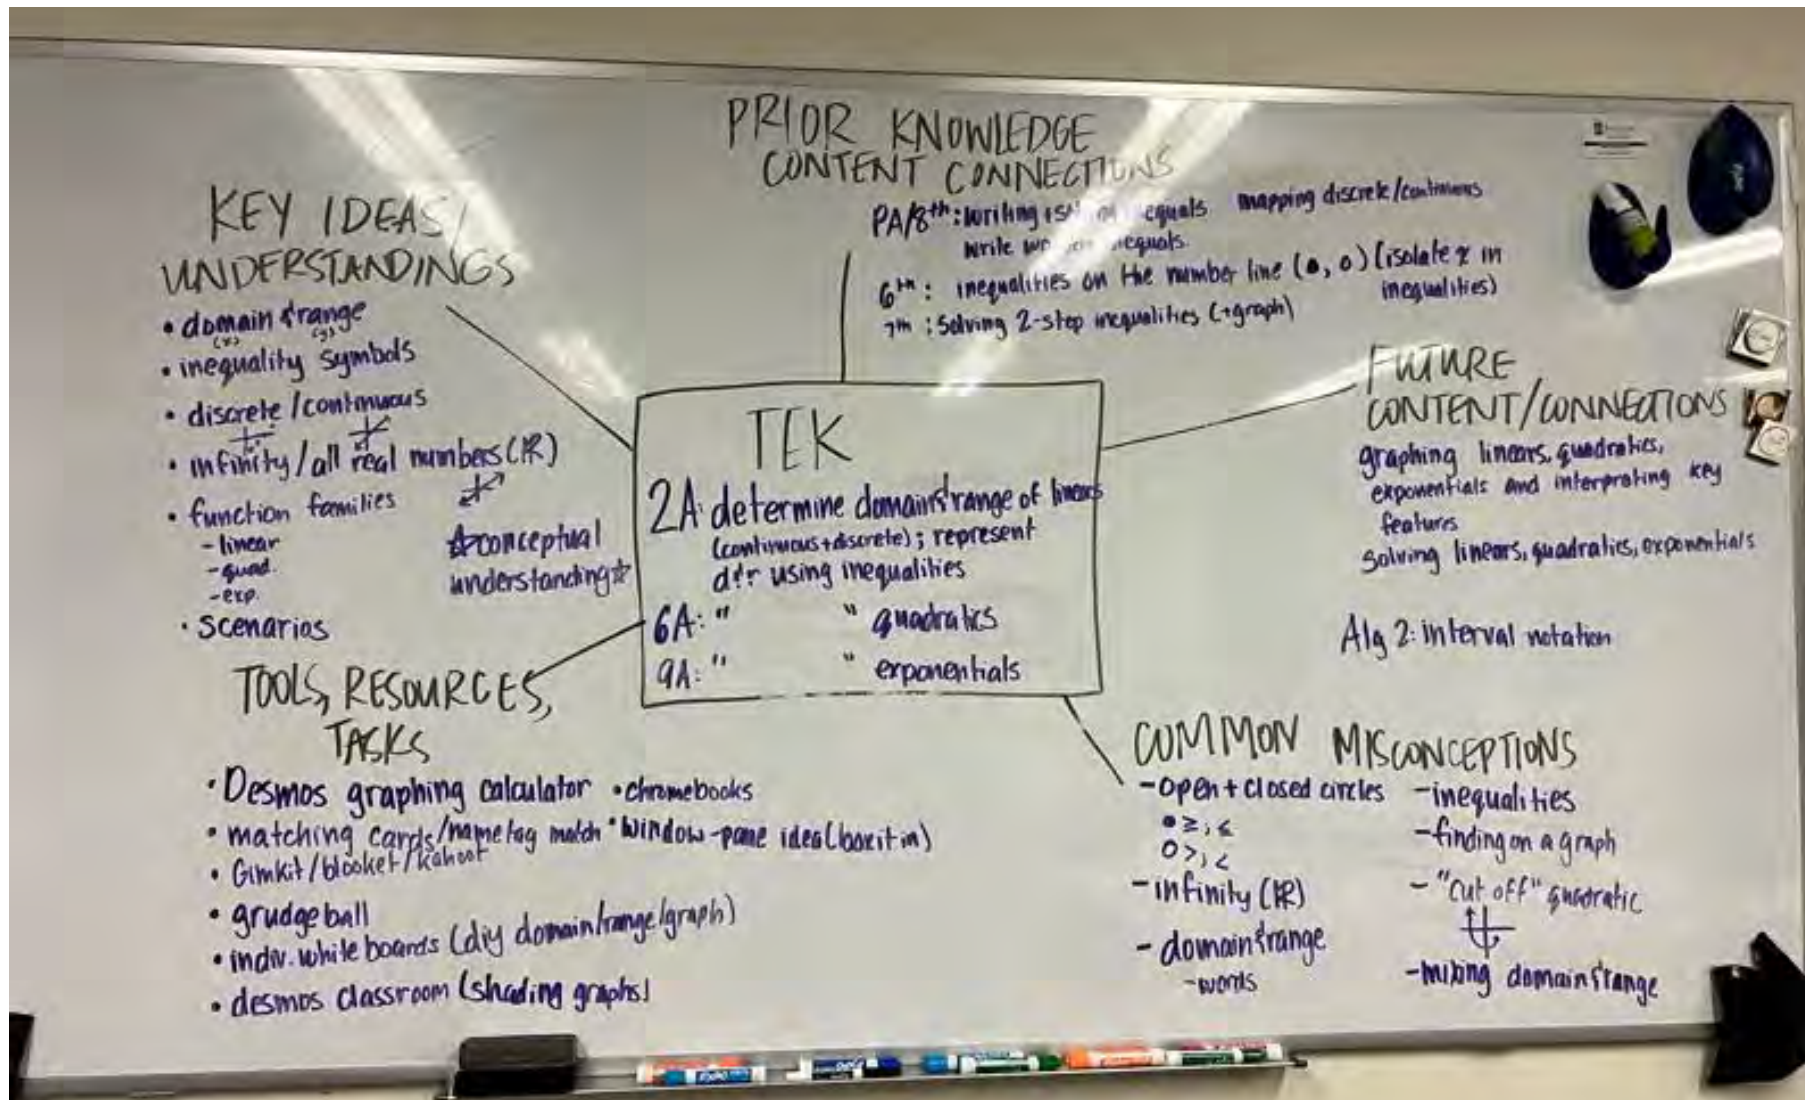 PRIOR KNOWLEDGE
CONTENT CONNECTIONS
PA/8th: writing + equals mapping discrete/continuous
write inequals.
6th: inequalities on the number line (●, ○) (isolate x in
inequalities)
7th: Solving 2-step inequalities (+graph)
KEY IDEAS/
UNDERSTANDINGS
• domain & range
(x) (y)
• inequality symbols
• discrete/continuous
• infinity/all real numbers (ℝ)
• function families
- linear
- quad.
- exp.
☆conceptual
understanding☆
• scenarios
TEK
2A: determine domain & range of linears
(continuous + discrete); represent
d & r using inequalities
6A: " " quadratics
9A: " " exponentials
FUTURE
CONTENT/CONNECTIONS
graphing linears, quadratics,
exponentials and interpreting key
features
Solving linears, quadratics, exponentials
Alg 2: interval notation
TOOLS, RESOURCES,
TASKS
• Desmos graphing calculator • chromebooks
• matching cards/nametag match • window-pane idea (box it in)
• Gimkit/blooket/kahoot
• grudgeball
• indiv. white boards (diy domain/range/graph)
• desmos classroom (shading graphs)
COMMON MISCONCEPTIONS
- open + closed circles
● ≥, ≤
○ >, <
- infinity (ℝ)
- domain & range
- words
- inequalities
- finding on a graph
- "cut off" quadratic
- mixing domain & range